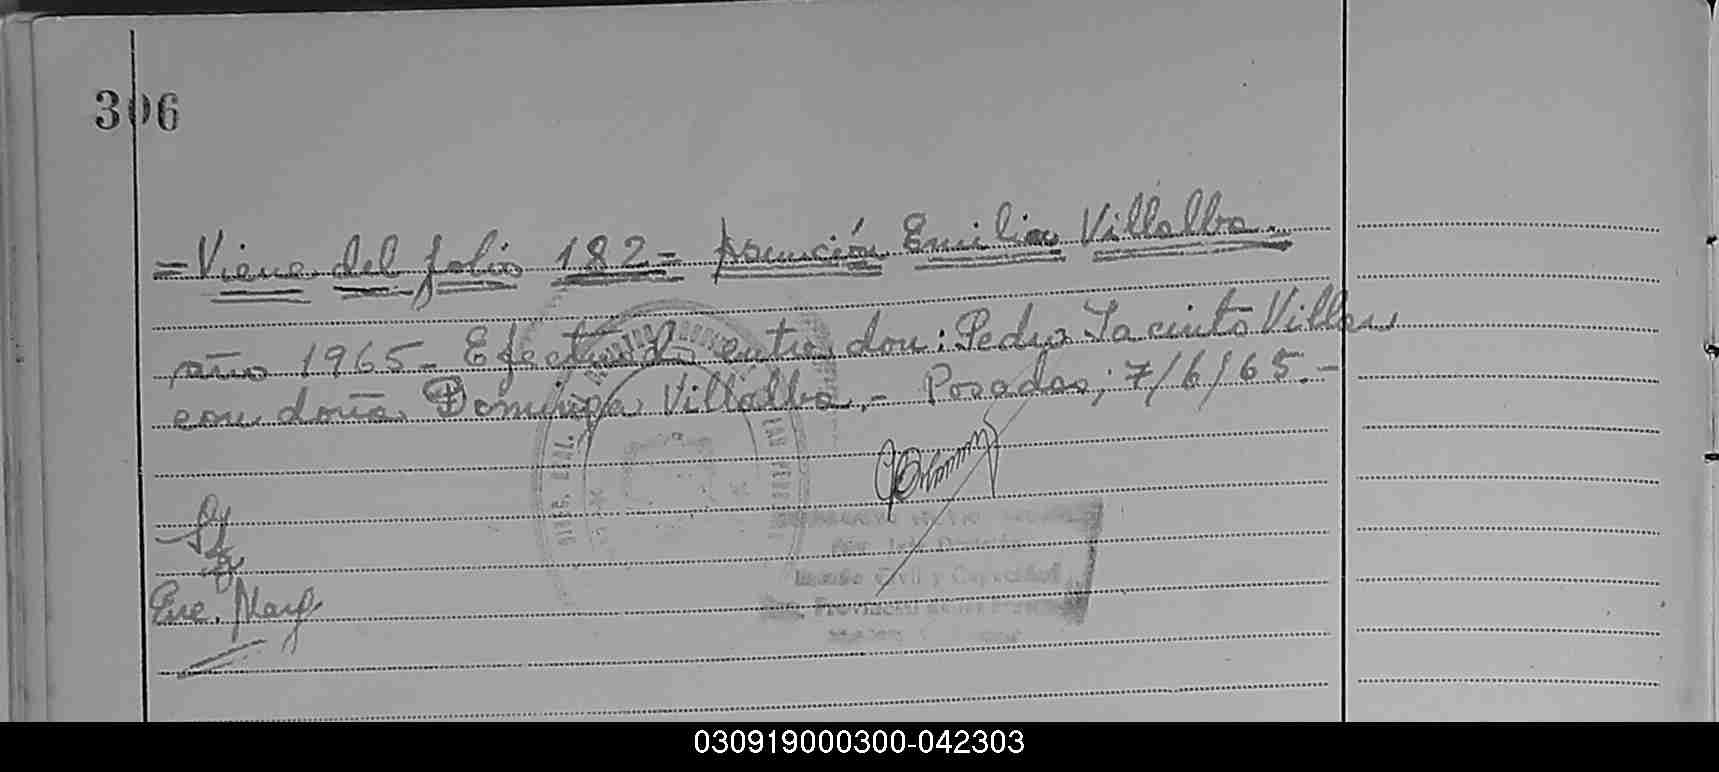 306
= Viene del folio 182 = Asunción Emilia Villalba.
año 1965 - Efectuado entre don: Pedro Jacinto Villar
con doña Dominga Villalba.- Posadas; 7/6/65.-
Civil y Capacidad
Provincial de las Personas
030919000300-042303